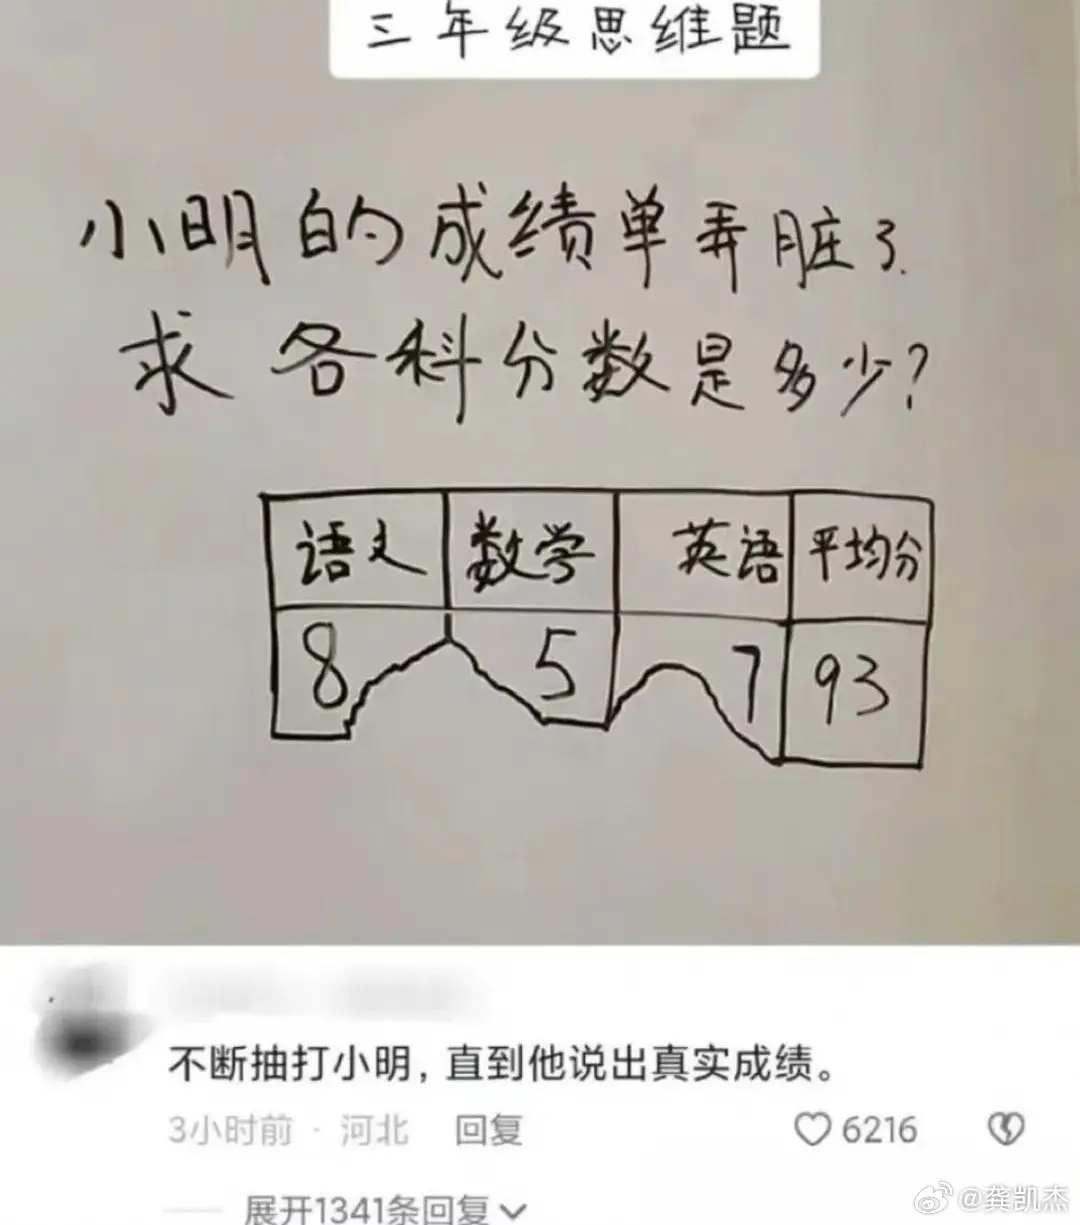 三年级思维题
小明的成绩单弄脏了.
求各科分数是多少?
语文 数学 英语 平均分
8 5 7 93
不断抽打小明，直到他说出真实成绩。
3小时前 · 河北 回复 6216
展开1341条回复
@龚凯杰